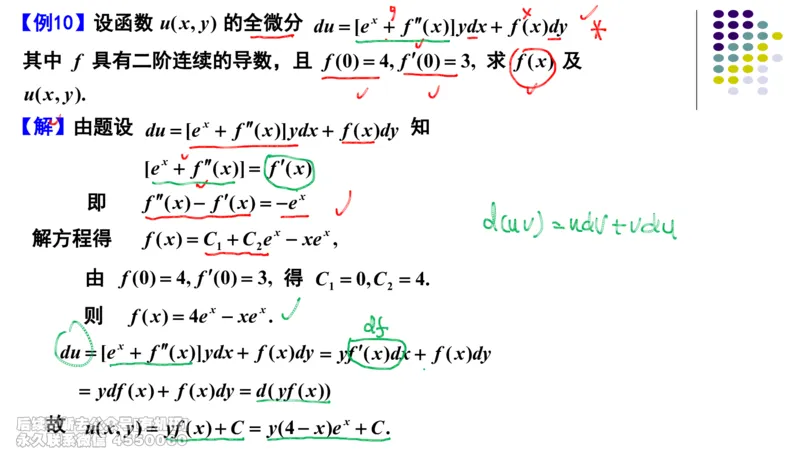 【例10】设函数 u(x, y) 的全微分 du = [eˣ + f″(x)]ydx + f(x)dy
其中 f 具有二阶连续的导数，且 f(0) = 4, f′(0) = 3, 求 f(x) 及
u(x, y).
【解】由题设 du = [eˣ + f″(x)]ydx + f(x)dy 知
[eˣ + f″(x)] = f′(x)
即 f″(x) − f′(x) = −eˣ
d(uv) = udv + vdu
解方程得 f(x) = C₁ + C₂eˣ − xeˣ,
由 f(0) = 4, f′(0) = 3, 得 C₁ = 0, C₂ = 4.
则 f(x) = 4eˣ − xeˣ.
df
du = [eˣ + f″(x)]ydx + f(x)dy = yf′(x)dx + f(x)dy
= ydf(x) + f(x)dy = d(yf(x))
故 u(x, y) = yf(x) + C = y(4 − x)eˣ + C.